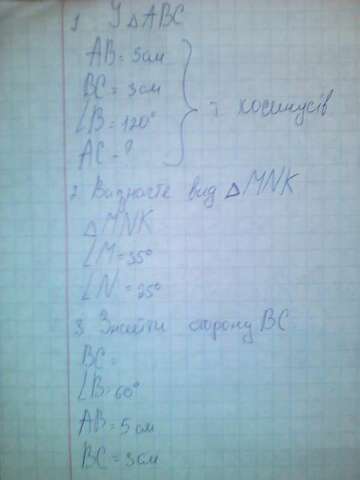 1 У △ABC
AB = 5 см
BC = 3 см
∠B = 120°
AC - ?
т косинусів
2 Визначте вид △MNK
△MNK
∠M = 35°
∠N = 25°
3. Знайти сторону BC
BC =
∠B = 60°
AB = 5 см
BC = 3 см